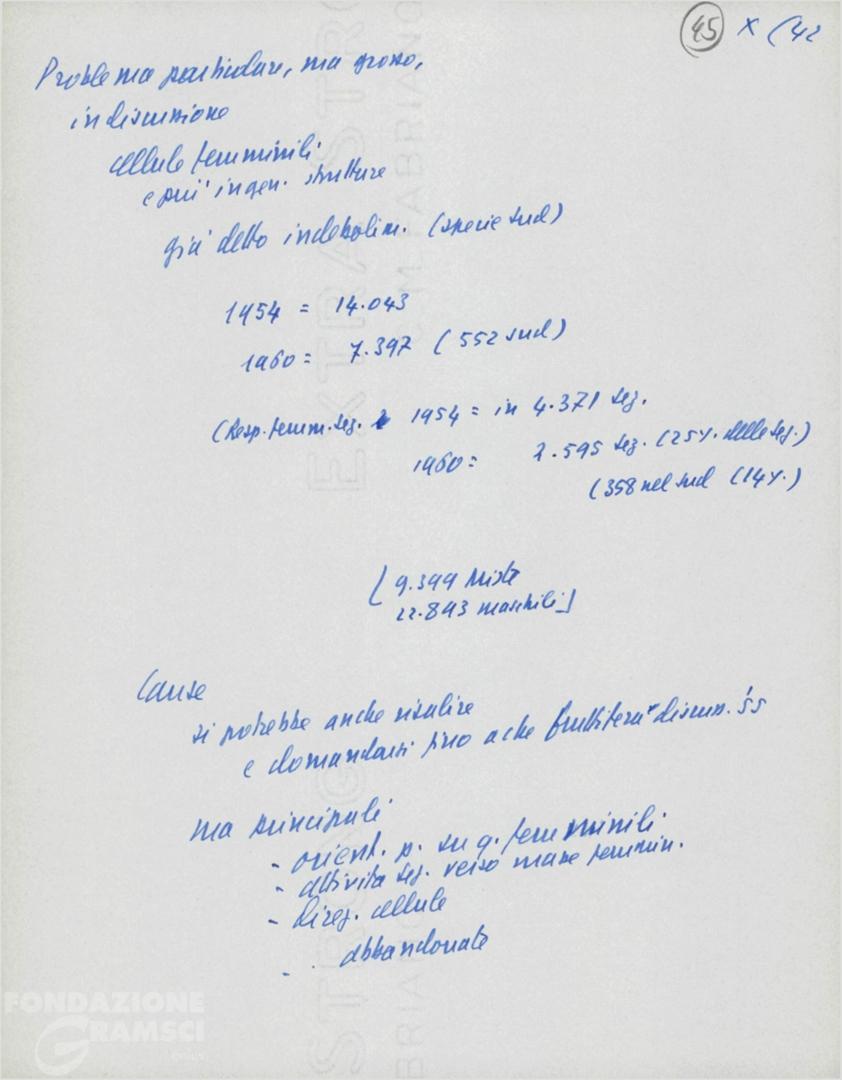 45 x (42
Problema particolare, ma grosso,
in discussione
cellule femminili
e più in gen. strutture
già detto indebolim. (specie sud)
1954 = 14.043
1960 = 7.397 (552 sud)
(Resp. femm. sez. 1954 = in 4.371 sez.
1960 = 2.595 sez. (25%. delle sez.)
(358 nel sud (14%.)
[9.399 miste
22.893 maschili]
Cause
si potrebbe anche risalire
e domandarsi fino a che discuss. '55
ma principali
- orient. p. su q. femminili.
- attività sez. verso masse femmin.
- direz. cellule
- abbandonate
EXTRA STRONG
FABRIANO
FONDAZIONE
GRAMSCI
onlus